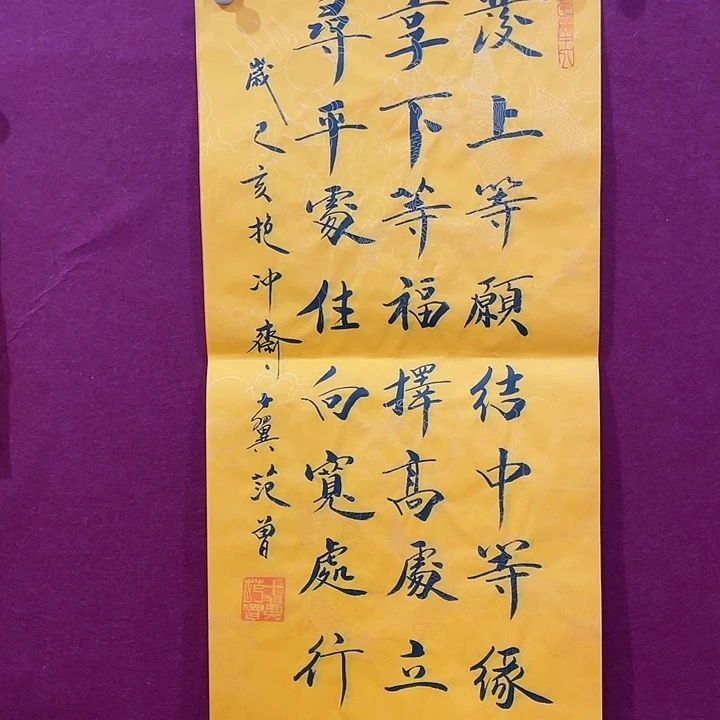 發上等願結中等緣
享下等福擇高處立
尋平處住向寬處行
歲己亥抱冲齋十翼范曾
十翼范曾